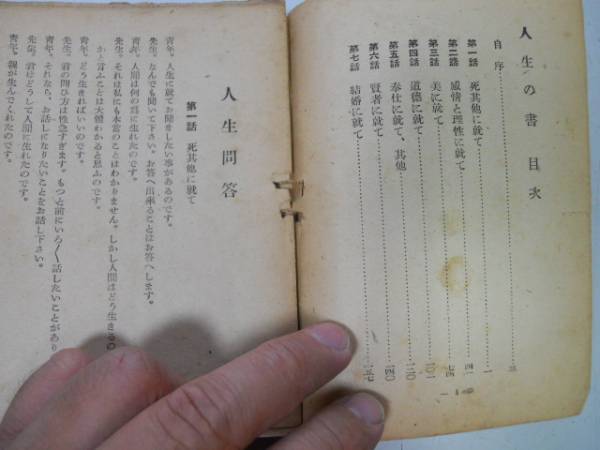 人生の書 目次
自序
第一話 死其他に就て 一
第二話 感情と理性に就て 四一
第三話 美に就て 七四
第四話 道德に就て 一〇一
第五話 奉仕に就て、其他 一二〇
第六話 賢者に就て 一四〇
第七話 結婚に就て 一五七
人生問答
第一話 死其他に就て
靑年。人生に就てお聞きしたい事があるのです。
先生。なんでも聞いて下さい。お答へ出來ることはお答へします。
靑年。人間は何の爲に生れたのです。
先生。それは私にも本當のことはわかりません。しかし人間はどう生きるの
かと言ふことは大體わかると思ふのです。
靑年。どう生きればいゝのです。
先生。君の問ひ方は性急すぎます。もつと前にいろ〳〵話したいことがあり
靑年。それなら、お話しになりたいことをお話し下さい。
先生。君はどうして人間に生れたのです。
靑年。親が生んでくれたのです。